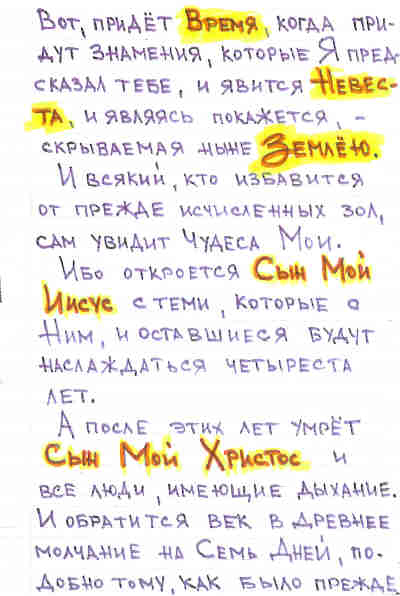 Вот, придёт Время, когда при-
дут знамения, которые Я пред-
сказал тебе, и явится Невес-
та, и являясь покажется, -
скрываемая ныне Землёю.
И всякий, кто избавится
от прежде исчисленных зол,
сам увидит Чудеса Мои.
Ибо откроется Сын Мой
Иисус с теми, которые с
Ним, и оставшиеся будут
наслаждаться четыреста
лет.
А после этих лет умрёт
Сын Мой Христос и
все люди, имеющие дыхание.
И обратится век в древнее
молчание на Семь Дней, по-
добно тому, как было прежде